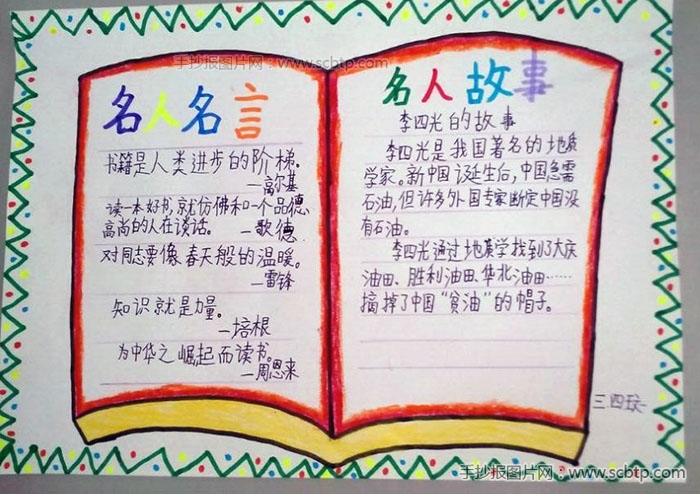 手抄报图片网:www.scbtp.com
名人名言
书籍是人类进步的阶梯。
—高尔基
读一本好书,就仿佛和一个品德
高尚的人在谈话。 —歌德
对同志要像春天般的温暖。
—雷锋
知识就是力量。
—培根
为中华之崛起而读书。
—周恩来
名人故事
李四光的故事
李四光是我国著名的地质
学家。新中国诞生后,中国急需
石油,但许多外国专家断定中国没
有石油。
李四光通过地质学找到了大庆
油田、胜利油田、华北油田……
摘掉了中国“贫油”的帽子。
三四班
手抄报图片网:www.scbtp.com